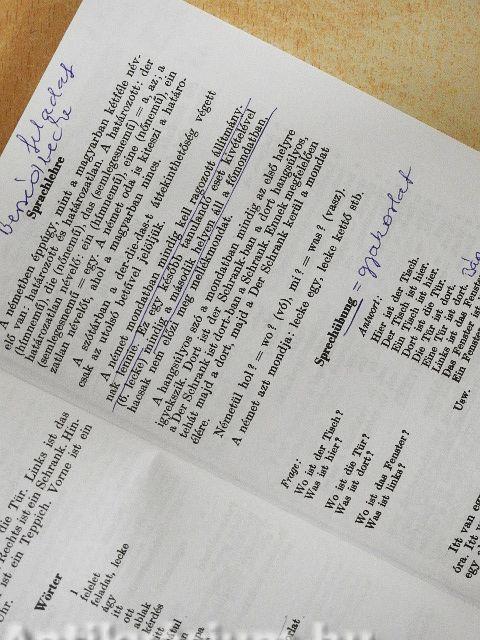 feladat
Sprachlehre
A németben éppúgy mint a magyarban kétféle név-
elő van: határozott és határozatlan. A határozott: der
(hímnemű), die (nőnemű), das (semlegesnemű) = a, az; a
határozatlan névelő: ein (hímnemű), eine (nőnemű), ein
(semlegesnemű) = egy. A német oda is kiteszi a határo-
zatlan névelőt, ahol a magyarban nincs.
A szótárban a der-die-das-t áttekinthetőség végett
csak az utolsó betűvel jelöljük.
A német mondatban mindig kell ragozott állítmány-
nak lennie. Ez egy később tanulandó eset kivételével
(6. lecke) mindig a második helyen áll a főmondatban,
hacsak nem előzi meg mellékmondat.
A hangsúlyos szó a mondatban mindig az első helyre
igyekszik. Dort ist der Schrank-ban a dort hangsúlyos,
a Der Schrank ist dort-ban a Schrank. Ennek megfelelően
tehát majd a dort, majd a Der Schrank kerül a mondat
élére.
Németül hol? = wo? (vó), mi? = was? (vasz).
A német azt mondja: lecke egy, lecke kettő stb.
Sprechübung = gyakorlat
Frage:
Wo ist der Tisch?
Was ist hier?
Wo ist die Tür?
Was ist dort?
Wo ist das Fenster?
Was ist links?
Antwort:
Hier ist der Tisch.
Der Tisch ist hier.
Ein Tisch ist hier.
Dort ist die Tür.
Die Tür ist dort.
Eine Tür ist dort.
Links ist das Fenster
Das Fenster ist
Ein Fenster
Usw.
Itt van eg
óra. Itt v
egy
die Tür. Links ist das
Rechts ist ein Schrank. Hin-
ist ein Teppich. Vorne ist ein
Uhr.
Wörter
felelet
feladat, lecke
ágy
itt
ott
ablak
kérdés